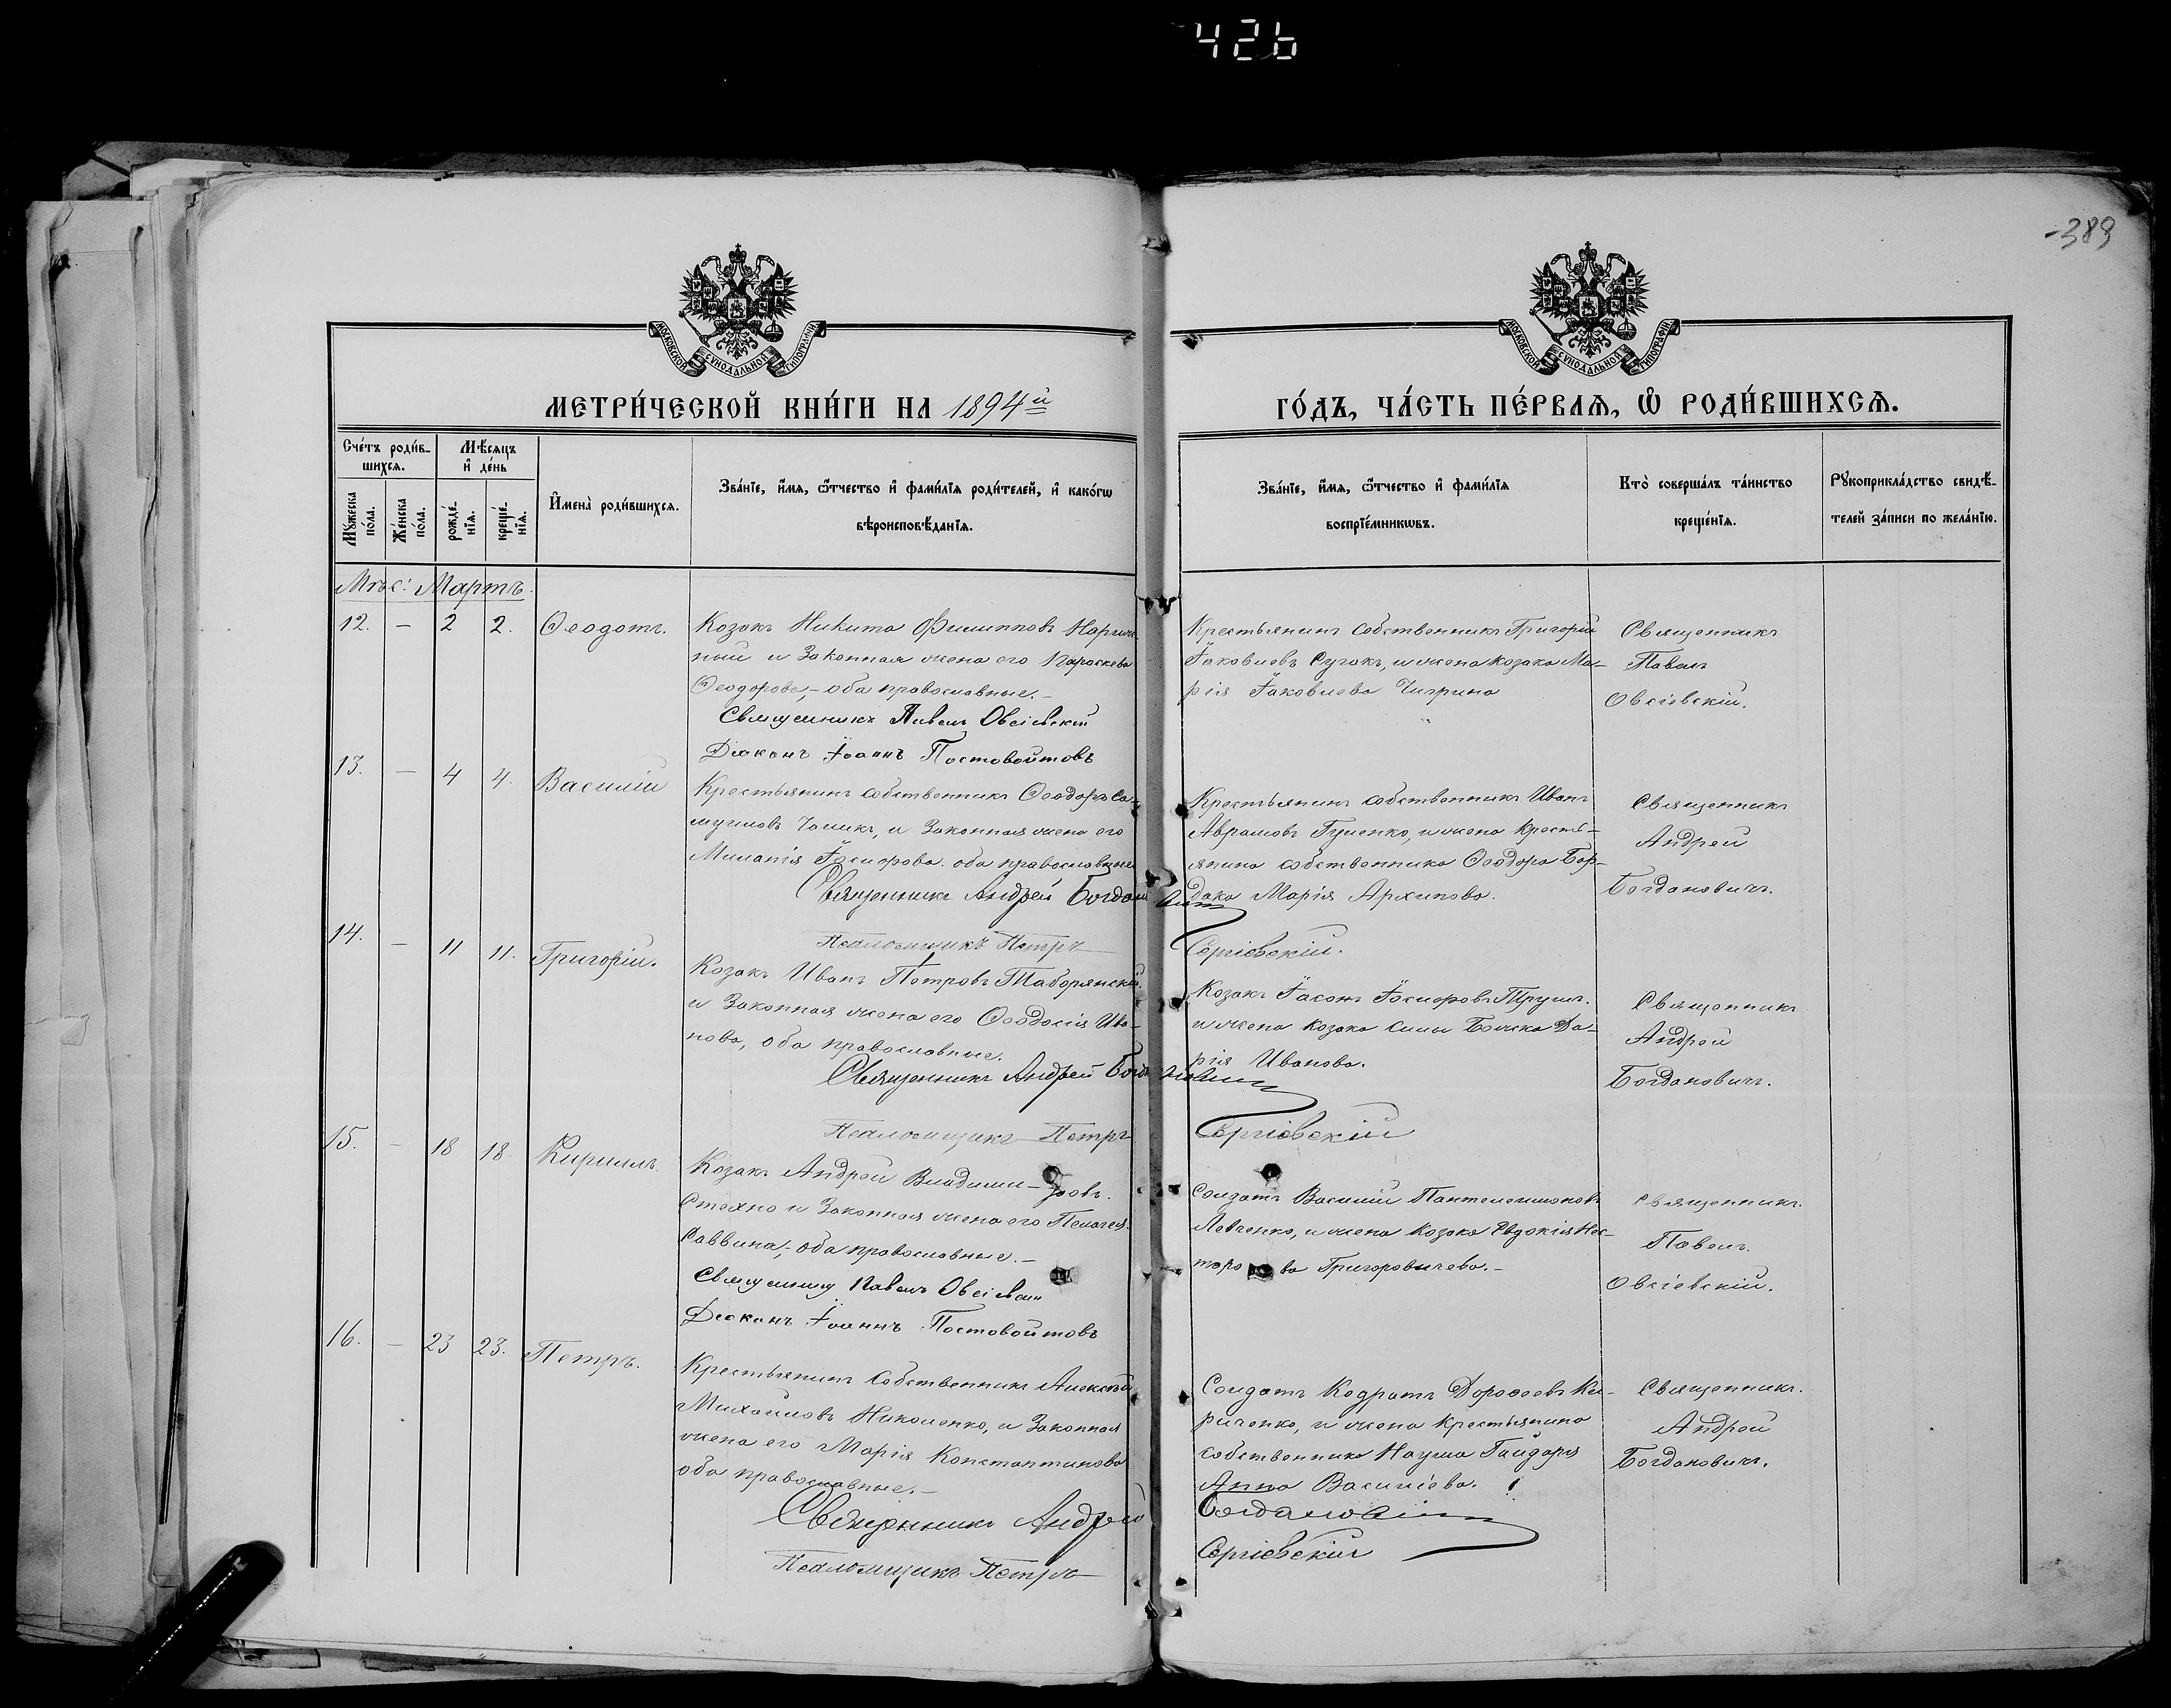 426
-389
МОСКОВСКОЙ СѴНОДАЛЬНОЙ ТИПОГРАФІИ
МОСКОВСКОЙ СѴНОДАЛЬНОЙ ТИПОГРАФІИ
МЕТРИ́ЧЕСКОЙ КНИ́ГИ НА 1894й
ГО́ДЪ, ЧА́СТЬ ПЕ́РВАѦ, Ѡ РОДИ́ВШИХСѦ.
Сче́тъ роди́в-
шихсѧ.
Мѣ́сѧцъ
и҆ де́нь
Мꙋ́жеска
по́ла.
Же́нска
по́ла.
рожде́-
нїѧ.
креще́-
нїѧ.
И҆мена̀ роди́вшихсѧ.
Зва́нїе, и҆́мѧ, ѻ҆́тчество и҆ фами́лїѧ роди́телей, и҆ како́гѡ
вѣроисповѣ́данїѧ.
Зва́нїе, и҆́мѧ, ѻ҆́тчество и҆ фами́лїѧ
воспрїе́мникѡвъ.
Кто̀ соверша́лъ та́инство
креще́нїѧ.
Рꙋкоприкла́дство свидѣ́-
телей за́писи по жела́нїю.
Мѣс: Мартъ.
12. — 2 2. Ѳеодотъ.
Козакъ Никита Филипповъ
ный и Законная жена его Параскева
Ѳеодорова, – оба православные. –
Священникъ Павелъ Овсіевскій
Діаконъ Іоаннъ Постовойтовъ
Крестьянинъ собственникъ Григорій
Іаковлевъ Сугакъ, и жена козака Ма-
рія Іаковлева Чигрина
Священникъ
Павелъ
Овсіевскій.
13. — 4 4. Василій
Крестьянинъ собственникъ Ѳеодоръ Са-
муиловъ и Законная жена его
Миланія Іосифова. оба православные
Священникъ Андрей Богдановичъ
Псаломщикъ Петръ Сергіевскій.
Крестьянинъ собственникъ Иванъ
Аврамовъ Гуленко, и жена кресть-
янина собственника Ѳеодора Бор-
дака Марія Архипова.
Священникъ
Андрей
Богдановичъ.
14. — 11 11. Григорій.
Козакъ Иванъ Петровъ Таборянскій
и Законная жена его Ѳеодосія Ива-
нова, оба православные.
Священникъ Андрей Богдановичъ
Псаломщикъ Петръ Сергіевскій
Козакъ Іасонъ Іосифовъ Трушъ.
и жена козака Силы Да-
рія Иванова.
Священникъ
Андрей
Богдановичъ.
15. — 18 18. Кириллъ.
Козакъ Андрей Владими-ровъ.
Стехно и Законная жена его Пелагея
Саввина, – оба православные. –
Священникъ Павелъ Овсіевскій
Діаконъ Іоаннъ Постовойтовъ
Солдатъ Василій Пантелеимоновъ
Левченко, и жена козака Евдокія Нес-
торова Григоровичева. –
Священникъ.
Павелъ.
Овсіевскій.
16. — 23 23. Петръ.
Крестьянинъ Собственникъ Алексѣй
Михайловъ Николенко, и Законная
жена его Марія Константинова
оба православные. –
Священникъ Андрей Богдановичъ
Псаломщикъ Петръ Сергіевскій
Солдатъ Кодратъ Дороѳеевъ Ки-
риченко, и жена крестьянина
собственника Наума Гайдаря
Анна Василіева.
Священникъ.
Андрей
Богдановичъ.